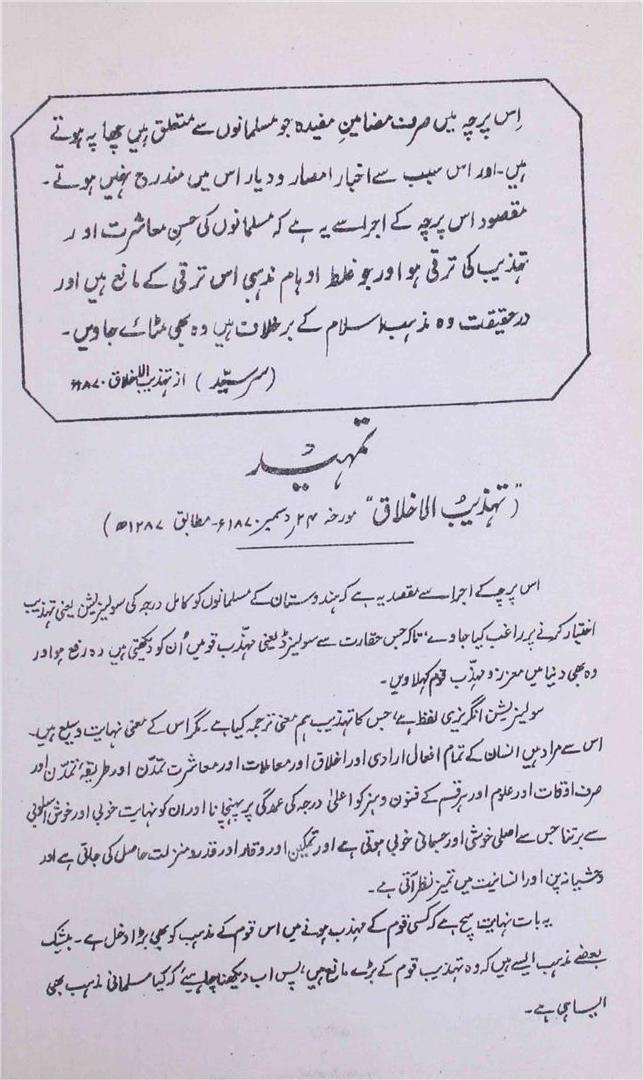 اِس پرچہ میں صرف مضامینِ مفیدہ جو مسلمانوں سے متعلق ہیں چھاپہ ہوتے
ہیں۔ اور اس سبب سے اخبار امصار و دیار اس میں مندرج نہیں ہوتے۔
مقصود اس پرچہ کے اجرا سے یہ ہے کہ مسلمانوں کی حسنِ معاشرت اور
تہذیب کی ترقی ہو اور جو غلط اوہام مذہبی اس ترقی کے مانع ہیں اور
درحقیقت وہ مذہب اسلام کے برخلاف ہیں وہ بھی مٹائے جاویں۔
(سرسیّد) از تہذیب الاخلاق ۱۸۷۰ء
تمہید
("تہذیبُ الاخلاق" مورخہ ۲۴ دسمبر ۱۸۷۰ء۔ مطابق ۱۲۸۷ھ)
اس پرچے کے اجرا سے مقصد یہ ہے کہ ہندوستان کے مسلمانوں کو کامل درجہ کی سولیزیشن یعنی تہذیب
اختیار کرنے پر راغب کیا جاوے، تاکہ جس حقارت سے سولیزڈ یعنی مہذّب قومیں اُن کو دیکھتی ہیں وہ رفع ہو اور
وہ بھی دنیا میں معزز و مہذّب قوم کہلاویں۔
سولیزیشن انگریزی لفظ ہے، جس کا تہذیب ہم معنی ترجمہ کیا ہے۔ مگر اس کے معنی نہایت وسیع ہیں۔
اس سے مراد ہیں انسان کے تمام افعال ارادی اور اخلاق اور معاملات اور معاشرت تمدّن اور طریقۂ تمدّن اور
صرف اوقات اور علوم اور ہر قسم کے فنون و ہنر کو اعلیٰ درجہ کی عمدگی پر پہنچانا اور ان کو نہایت خوبی اور خوش اسلوبی
سے برتنا جس سے اصلی خوشی اور جسمانی خوبی ہوتی ہے اور تمکین اور وقار اور قدر و منزلت حاصل کی جاتی ہے اور
وحشیانہ پن اور انسانیت میں تمیز نظر آتی ہے۔
یہ بات نہایت سچ ہے کہ کسی قوم کے مہذب ہونے میں اس قوم کے مذہب کو بھی بڑا دخل ہے۔ بیشک
بعضے مذہب ایسے ہیں کہ وہ تہذیب قوم کے بڑے مانع ہیں، پس اب دیکھنا چاہیے کہ کیا مسلمانی مذہب بھی
ایسا ہی ہے۔